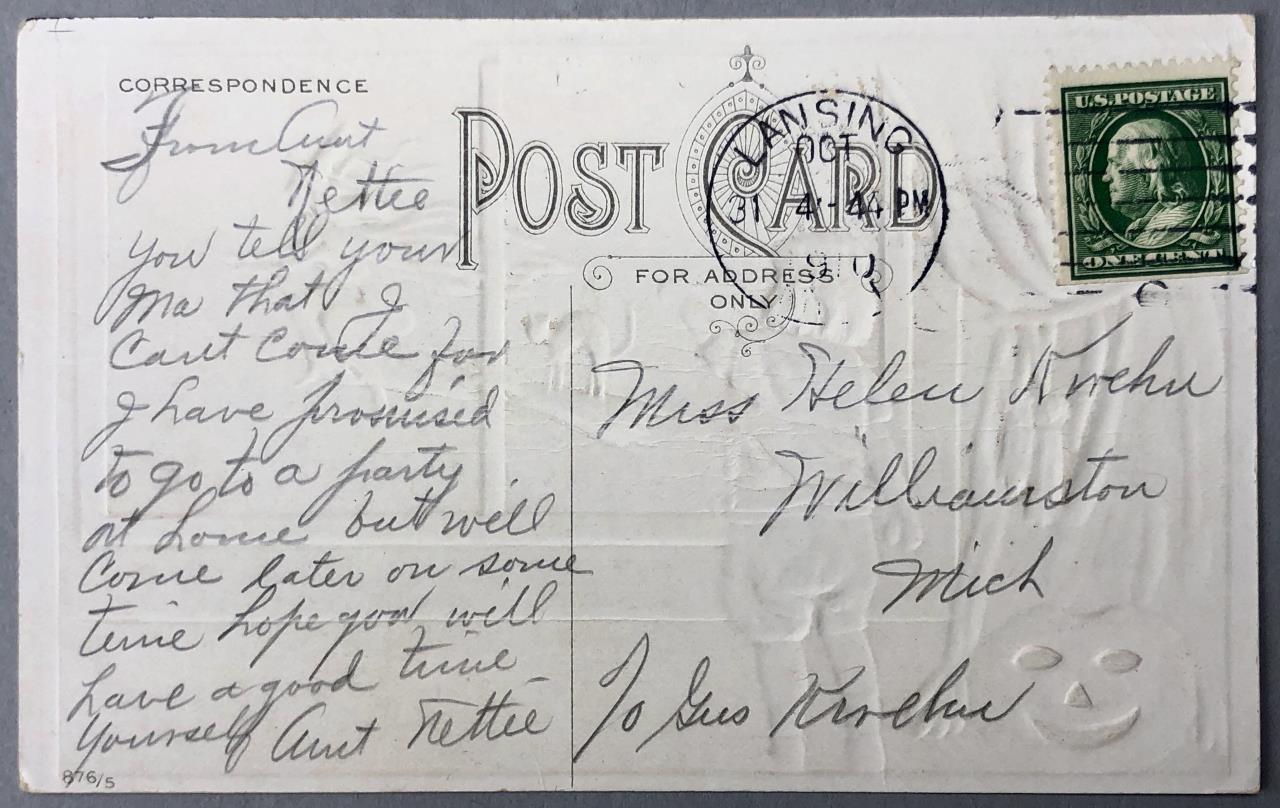 CORRESPONDENCE
From Aunt
Nettie
you tell your
Ma that I
Cant Come for
I have promised
to go to a party
at home but will
Come later on some
time hope you will
have a good time
yourself Aunt Nettie
876/5
POST CARD
FOR ADDRESS
ONLY
LANSING
OCT
31 4-44 PM
1910
U.S. POSTAGE
ONE CENT
Miss Helen Kroehn
Williamston
Mich
℅ Gus Kroehn